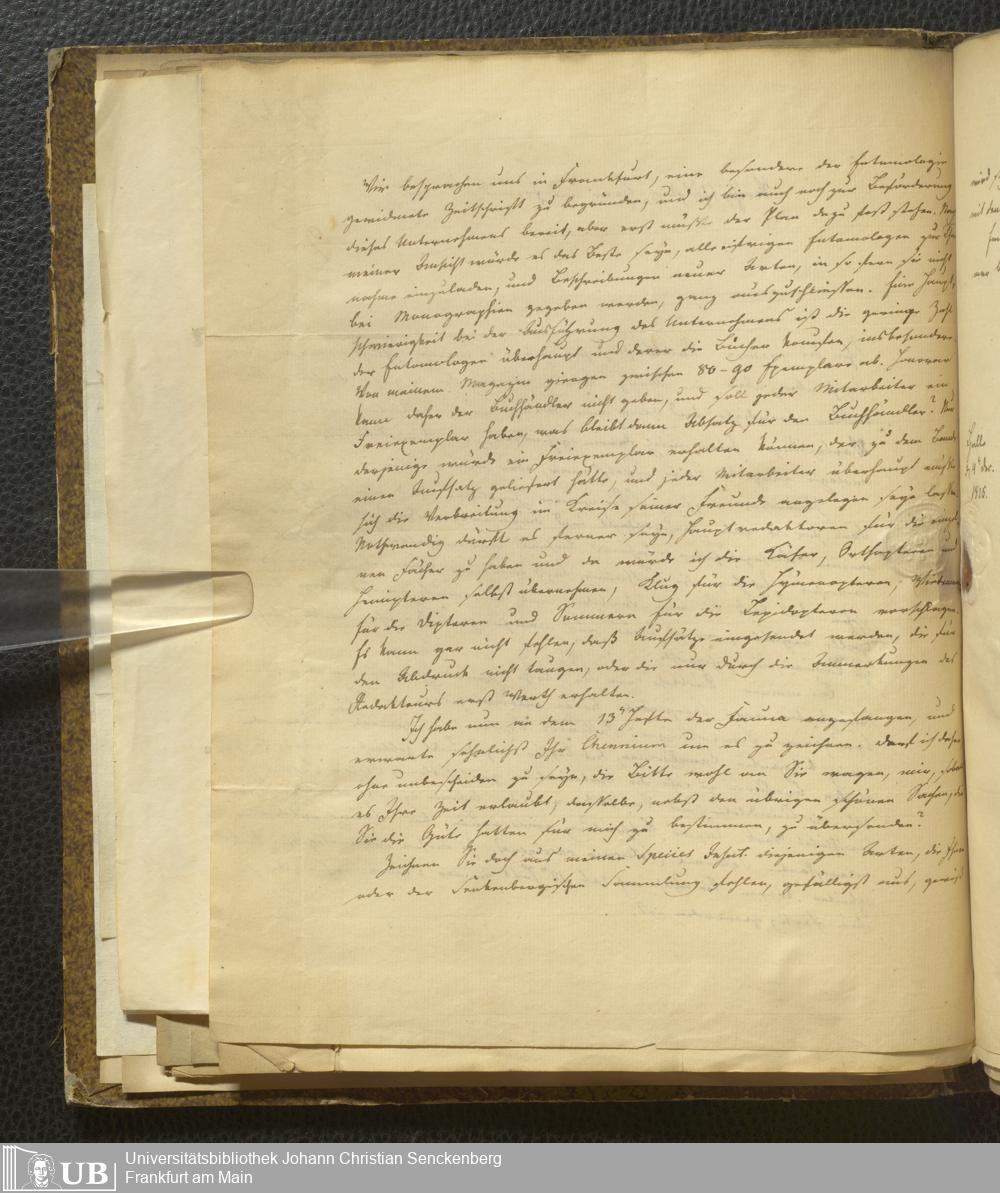 Wir besprachen uns in Frankfurt, eine besondere der Entomologie
gewidmete Zeitschrift zu begründen, und ich bin auch noch zur Beförderung
dieses Unternehmens bereit, aber erst müßte der Plan dazu fest stehen. Nach
meiner Ansicht würde es das Beste seyn, alle eifrigen Entomologen zur
nahme einzuladen, und Beschreibungen neuer Arten, in so fern sie nicht
bei Monographien gegeben werden, ganz auszuschliessen. Eine Haupt-
schwierigkeit bei der Ausführung des Unternehmens ist die geringe Zahl
der Entomologen überhaupt und derer die Bücher kaufen, insbesondere.
Von meinem Magazin giengen zwischen 80-90 Exemplare ab. Honorar
kann daher der Buchhändler nicht geben, und soll jeder Mitarbeiter ein
Freiexemplar haben, was bleibt dann Absatz für den Buchhändler? Nur
derjenige würde ein Freiexemplar erhalten können, der zu dem Bande
einen Aufsatz geliefert hätte, und jeder Mitarbeiter überhaupt müßte
sich die Verbreitung im Kreise seiner Freunde angelegen seyn lassen.
Nothwendig dürfte es ferner seyn, Hauptredaktoren für die einzel-
nen Fächer zu haben und da würde ich die Käfer, Orthopteren und
Hemipteren selbst übernehmen, Klug für die Hymenopteren, Wiedemann
für die Dipteren und Sommern für die Lepidopteren vorschlagen.
Es kann gar nicht fehlen, daß Aufsätze eingesendet werden, die für
den Abdruck nicht taugen, oder die nur durch die Anmerkungen des
Redakteurs erst Werth erhalten.
Ich habe nun an dem 13n Hefte der Fauna angefangen, und
erwarte sehnlichst Ihr Chennium um es zu zeichnen. Darf ich daher
ohne unbescheiden zu seyn, die Bitte wohl an Sie wagen, mir, sobald
es Ihre Zeit erlaubt, dasselbe, nebst den übrigen schönen Sachen, die
Sie die Güte hatten für mich zu bestimmen, zu übersenden?
Zeichnen Sie doch aus meinen Species Insect. diejenigen Arten, die Ihnen
oder der Senkenbergischen Sammlung fehlen, gefälligst aus, gewiß
Halle
UB
Universitätsbibliothek Johann Christian Senckenberg
Frankfurt am Main